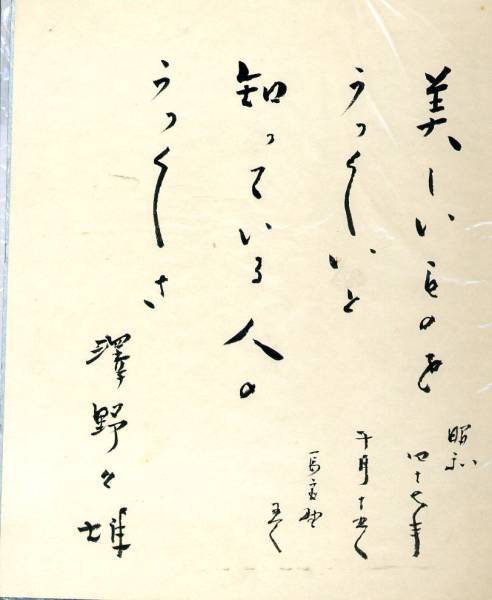 美しいものを
うつくしいと
知っている人の
うつくしさ
澤野久雄
昭和
四十七年
十月十五日